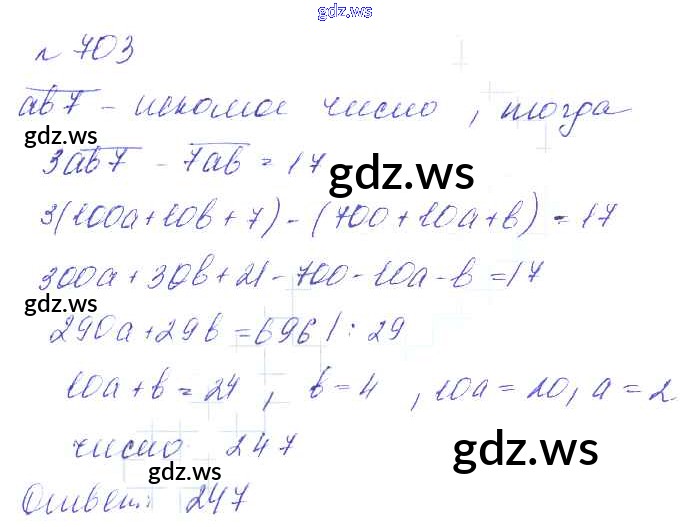 gdz.ws
№ 703
ab7 - искомое число, тогда
gdz.ws
3ab7 - 7ab = 17
gdz.ws
3(100a+10b+7)-(700+10a+b)=17
300a+30b+21-700-10a-b=17
gdz.ws
290a+29b=696 | : 29
10a+b=24, b=4, 10a=20, a=2
число 247
gdz.ws
gdz.ws
Ответ: 247